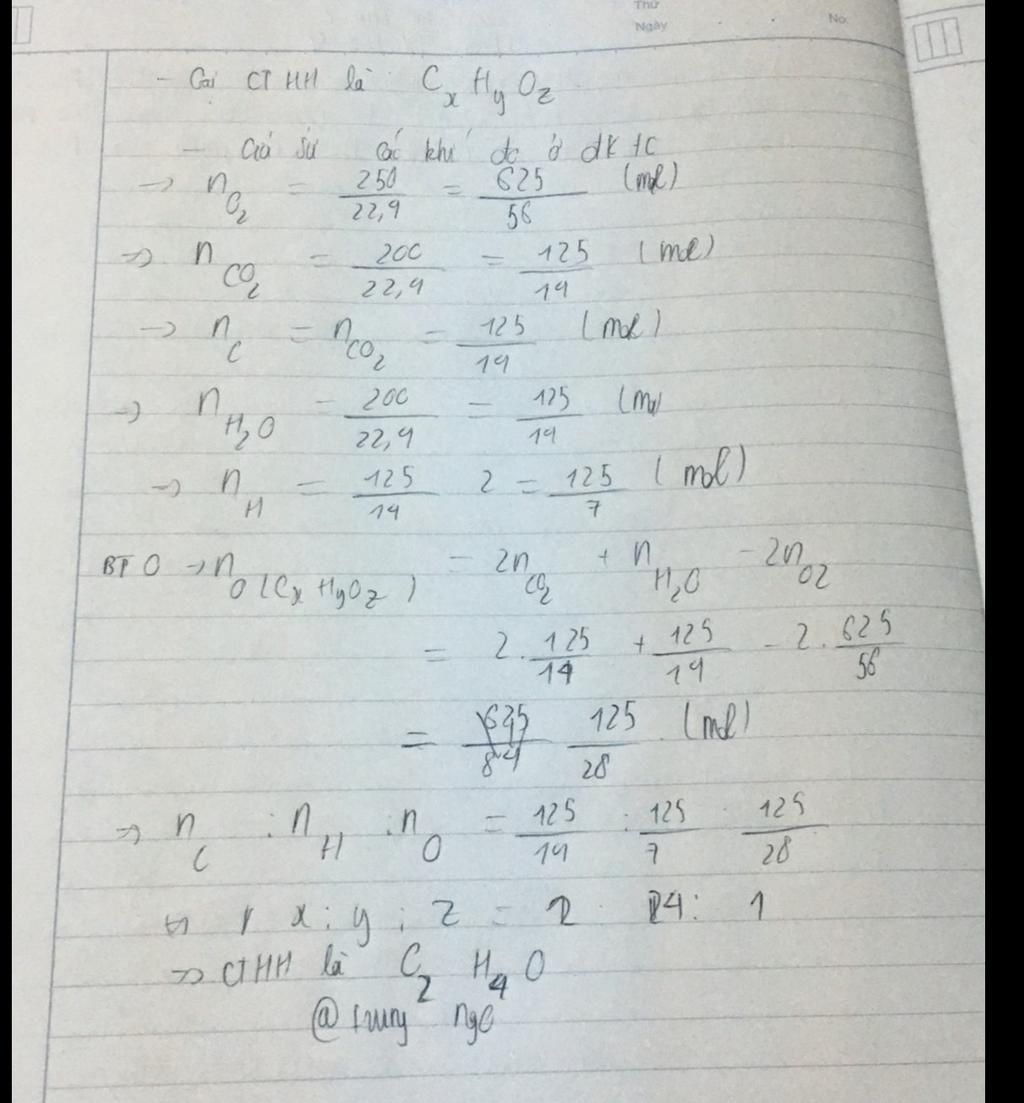 Thứ
Ngày
No.
- Gọi CTHH là C_x H_y O_z
- Giả sử các khí đo ở đktc
→ n_{O_2} = 250/22,4 = 625/56 (mol)
→ n_{CO_2} = 200/22,4 = 125/14 (mol)
→ n_C = n_{CO_2} = 125/14 (mol)
→ n_{H_2O} = 200/22,4 = 125/14 (mol
→ n_H = 125/14 2 = 125/7 (mol)
BT O → n_{O (C_x H_y O_z)} = 2n_{CO_2} + n_{H_2O} - 2n_{O2}
= 2. 125/14 + 125/14 - 2. 625/56
= 125/28 (mol)
→ n_C : n_H : n_O = 125/14 : 125/7 : 125/28
⇔ x : y : z = 2 : 4 : 1
→ CTHH là C_2 H_4 O
@trung ngo